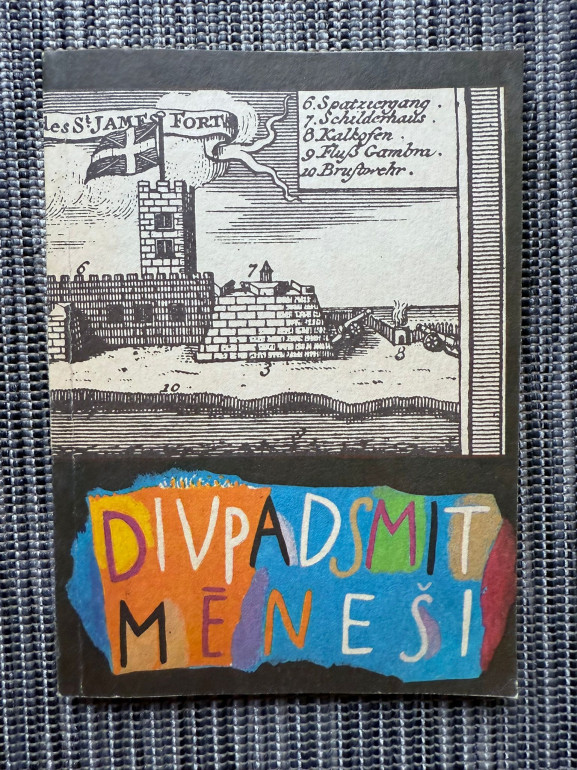 les St. JAMES FORTS
6. Spatziergang.
7. Schilderhaus.
8. Kalkofen.
9. Fluß Gambra.
10. Brustwehr.
6
7
8
3
10
DIVPADSMIT
MĒNEŠI